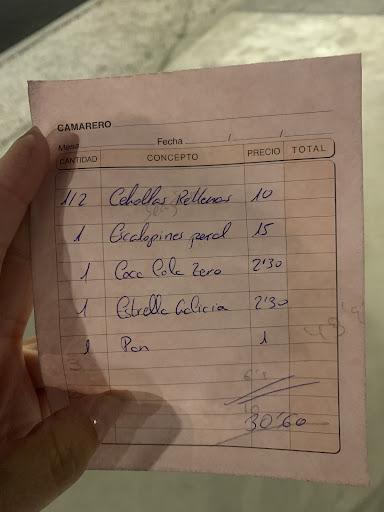 CAMARERO
Mesa Fecha / /
CANTIDAD CONCEPTO PRECIO TOTAL
1/2 Cebollas Rellenas 10
1 Escalopines peral 15
1 Coca Cola Zero 2'30
1 Estrella Galicia 2'30
1 Pan 1
30'60